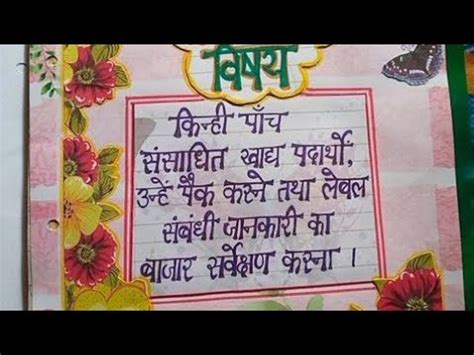 विषय
किन्ही पाँच
संसाधित खाद्य पदार्थो,
उन्हें पैक करने तथा लेबल
संबंधी जानकारी का
बाजार सर्वेक्षण करना ।